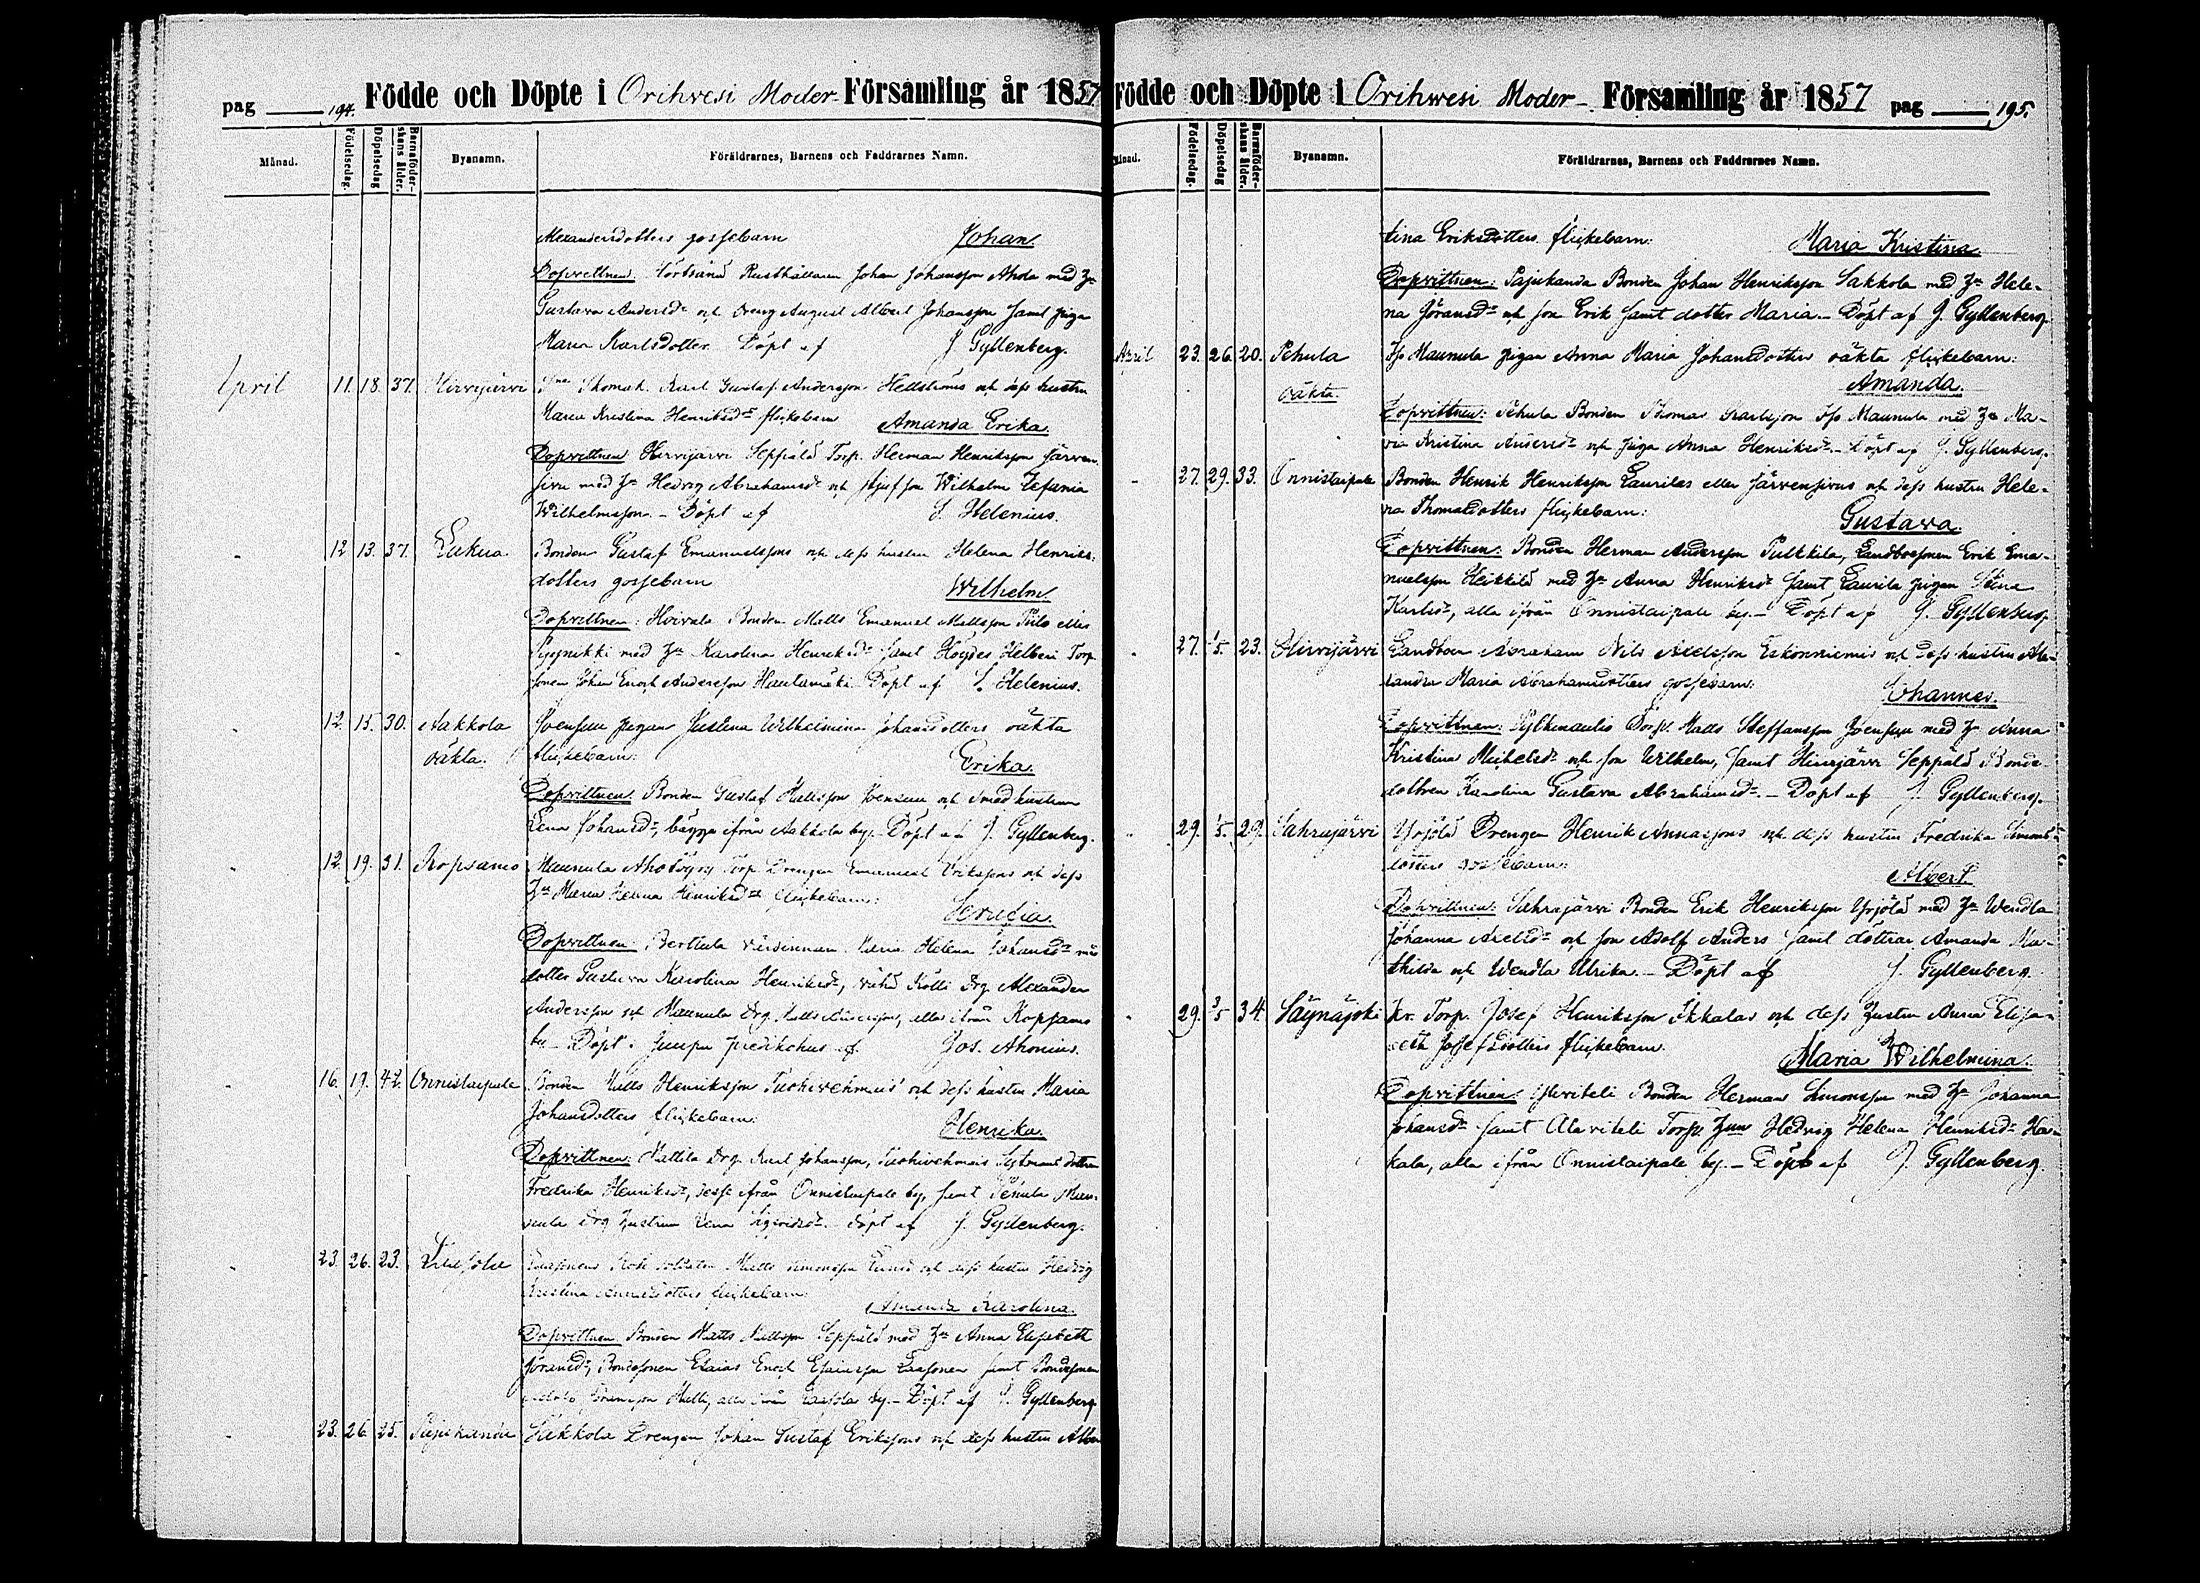 pag 194. Födde och Döpte i Orihvesi Moder-Församling år 1857
Månad. Födelsedag. Döpelsedag Barnaföderskans ålder. Byanamn. Föräldrarnes, Barnens och Faddrarnes Namn.
Alexandersdotters gossebarn Johan.
Dopvittnen: Rusthållaren Johan Johansson Ahola med H:u
Gustava Andersd:r och Dreng August Albert Johansson samt piga
Maria Karlsdotter. Döpt af J. Gyllenberg.
April 11. 18. 37. Hirvijärvi Karl Gustaf Andersson Hellströms och dess hustru
Maria Kristina Henriksd:rs flickebarn Amanda Erika.
Dopvittnen Hirvijärvi Seppälä Torp. Herman Henriksson Järven-
sivu med H:u Hedvig Abrahamsd:r och Wilhelm Zefania
Wilhelmsson. – Döpt af S. Helenius.
12 13. 37. Eukua. Bonden Gustaf Emanuelssons och dess hustru Helena Henriks-
dotters gossebarn Wilhelm.
Dopvittnen: Bonden Matts Emanuel Mattsson eller
med H:u Karolina Henriksd:r samt Torp
sonen Johan Enoch Andersson Hautamäki. Döpt af S. Helenius.
12 13. 30. Aakkola Joensuu pigan Justina Wilhelmina Johansdotters oäkta
oäkta. flickebarn: Erika.
Dopvittnen: Bonden Gustaf Mattsson Joensuu och hustrun
Lena Johansd:r, bägge ifrån Aakkola by. Döpt af J. Gyllenberg.
12. 19. 31. Kopsamo Maunula Torp Drengen Emanuel Erikssons och dess
H:u Maria Helena Henriksd:rs flickebarn: Serafia.
Dopvittnen: Berttula värdinnan Maria Helena Johansd:r med
dotter Gustava Karolina Henriksd:r, Kolli Drg. Alexander
Andersson och Maunula Drg. Matts Andersson, alla ifrån Kopsamo
by. – Döpt i af Jos. Ahonius.
16. 19. 42. Onnistaipale Bonden Matts Henriksson Tuohivehmais och dess hustru Maria
Johansdotters flickebarn: Henrika.
Dopvittnen: Mattila Drg. Karl Johansson, Tuohivehmais dottren
Fredrika Henriksd:r, desse ifrån Onnistaipale by, samt Pehula Mau-
nula Drg hustrun Lena Döpt af J. Gyllenberg.
23. 26. 23. Matts Simonsson och dess hustru Hedvig
Kristina flickebarn: Amanda Karolina.
Dopvittnen: Bonden Matts Mattsson Seppälä med H:u Anna Elisabeth
Göransd:r, Bondesonen Esaias Enoch Esaiasson Laasonen samt Bondesonen
alla ifrån by. – Döpt af J. Gyllenberg
23. 26. 25. Pajukanda Sakkola Drengen Johan Gustaf Erikssons och dess hustru
Födde och Döpte i Orihwesi Moder- Församling år 1857 pag 195.
Månad. Födelsedag. Döpelsedag Barnaföderskans ålder. Byanamn. Föräldrarnes, Barnens och Faddrarnes Namn.
tina Eriksdotters flickebarn: Maria Kristina.
Dopvittnen: Pajukanda Bonden Johan Henriksson Sakkola med H:u Hele-
na Jöransd:r och son Erik samt dotter Maria. – Döpt af J. Gyllenberg.
April 23. 26. 20. Pehula Maunula pigan Anna Maria Johansdotters oäkta flickebarn:
oäkta. Amanda.
Dopvittnen: Pehula Bonden Thomas Karlsson Maunula med H:u Ma-
ria Kristina Andersd:r och piga Anna Henriksd:r. – Döpt af J. Gyllenberg.
27. 29. 33. Onnistaipale Bonden Henrik Henriksson Laurilas eller Järvensivus och dess hustru Hele-
na Thomasdotters flickebarn: Gustava.
Dopvittnen: Bonden Herman Andersson Pulkkila, Landbossonen Erik Ema-
nuelsson Heikkilä med H:u Anna Henriksd:r samt Laurila pigan Stina
Karlsd:r, alla ifrån Onnistaipale by. – Döpt af J. Gyllenberg
27. 1/5. 23. Hirvijärvi Landboen Abraham Nils Axelsson Eskonniemis och dess hustru Ale-
xandra Maria Abrahamsdotters gossebarn: Johannes.
Dopvittnen: Torp. Matts Steffansson Joensuu med H:u Anna
Kristina Michelsd:r och son Wilhelm, samt Hirvijärvi Seppälä Bonde-
dottren Karolina Gustava Abrahamsd:r. – Döpt af J. Gyllenberg.
29. 1/5. 29. Sahrajärvi Yrjölä Drengen Henrik Annassons och dess hustru Fredrika Simons-
dotters gossebarn: Albert.
Dopvittnen: Sahrajärvi Bonden Erik Henriksson Yrjölä med H:u Wendla
Johanna Axelsd:r och son Adolf Anders samt döttrar Amanda Ma-
thilda och Wendla Ulrika. – Döpt af J. Gyllenberg.
29. 3/5. 34. Säynäjoki Torp. Josef Henriksson Ikkalas och dess hustru Anna Elisa-
beth Josefsdotters flickebarn: Maria Wilhelmina.
Dopvittnen: Yliviteli Bonden Herman Simonsson med H:u Johanna
Johansd:r samt Alaviteli Torp. H:un Hedvig Helena Henriksd:r
kala, alla ifrån Onnistaipale by. – Döpt af J. Gyllenberg.